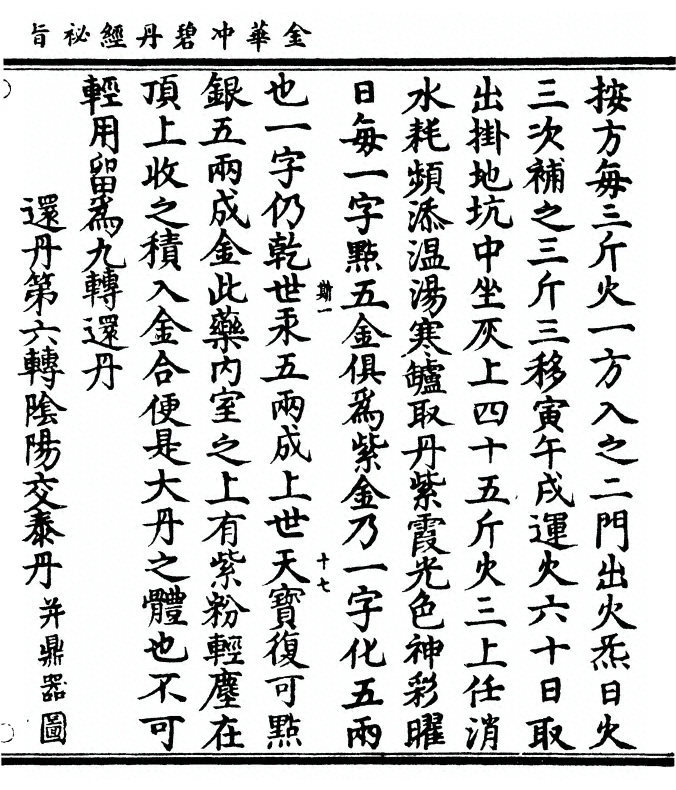 金華冲碧丹經祕旨
按方每三斤火一方入之二門出火炁日火
三次補之三斤三移寅午戌運火六十日取
出掛地坑中坐灰上四十五斤火三上任消
水耗頻添温湯寒罏取丹紫霞光色神彩曜
日每一字點五金俱爲紫金乃一字化五兩
也一字仍乾世汞五兩成上世天寶復可點
斯一
十七
銀五兩成金此藥内室之上有紫粉輕塵在
頂上收之積入金合便是大丹之體也不可
輕用留爲九轉還丹
還丹第六轉陰陽交泰丹并鼎器圖